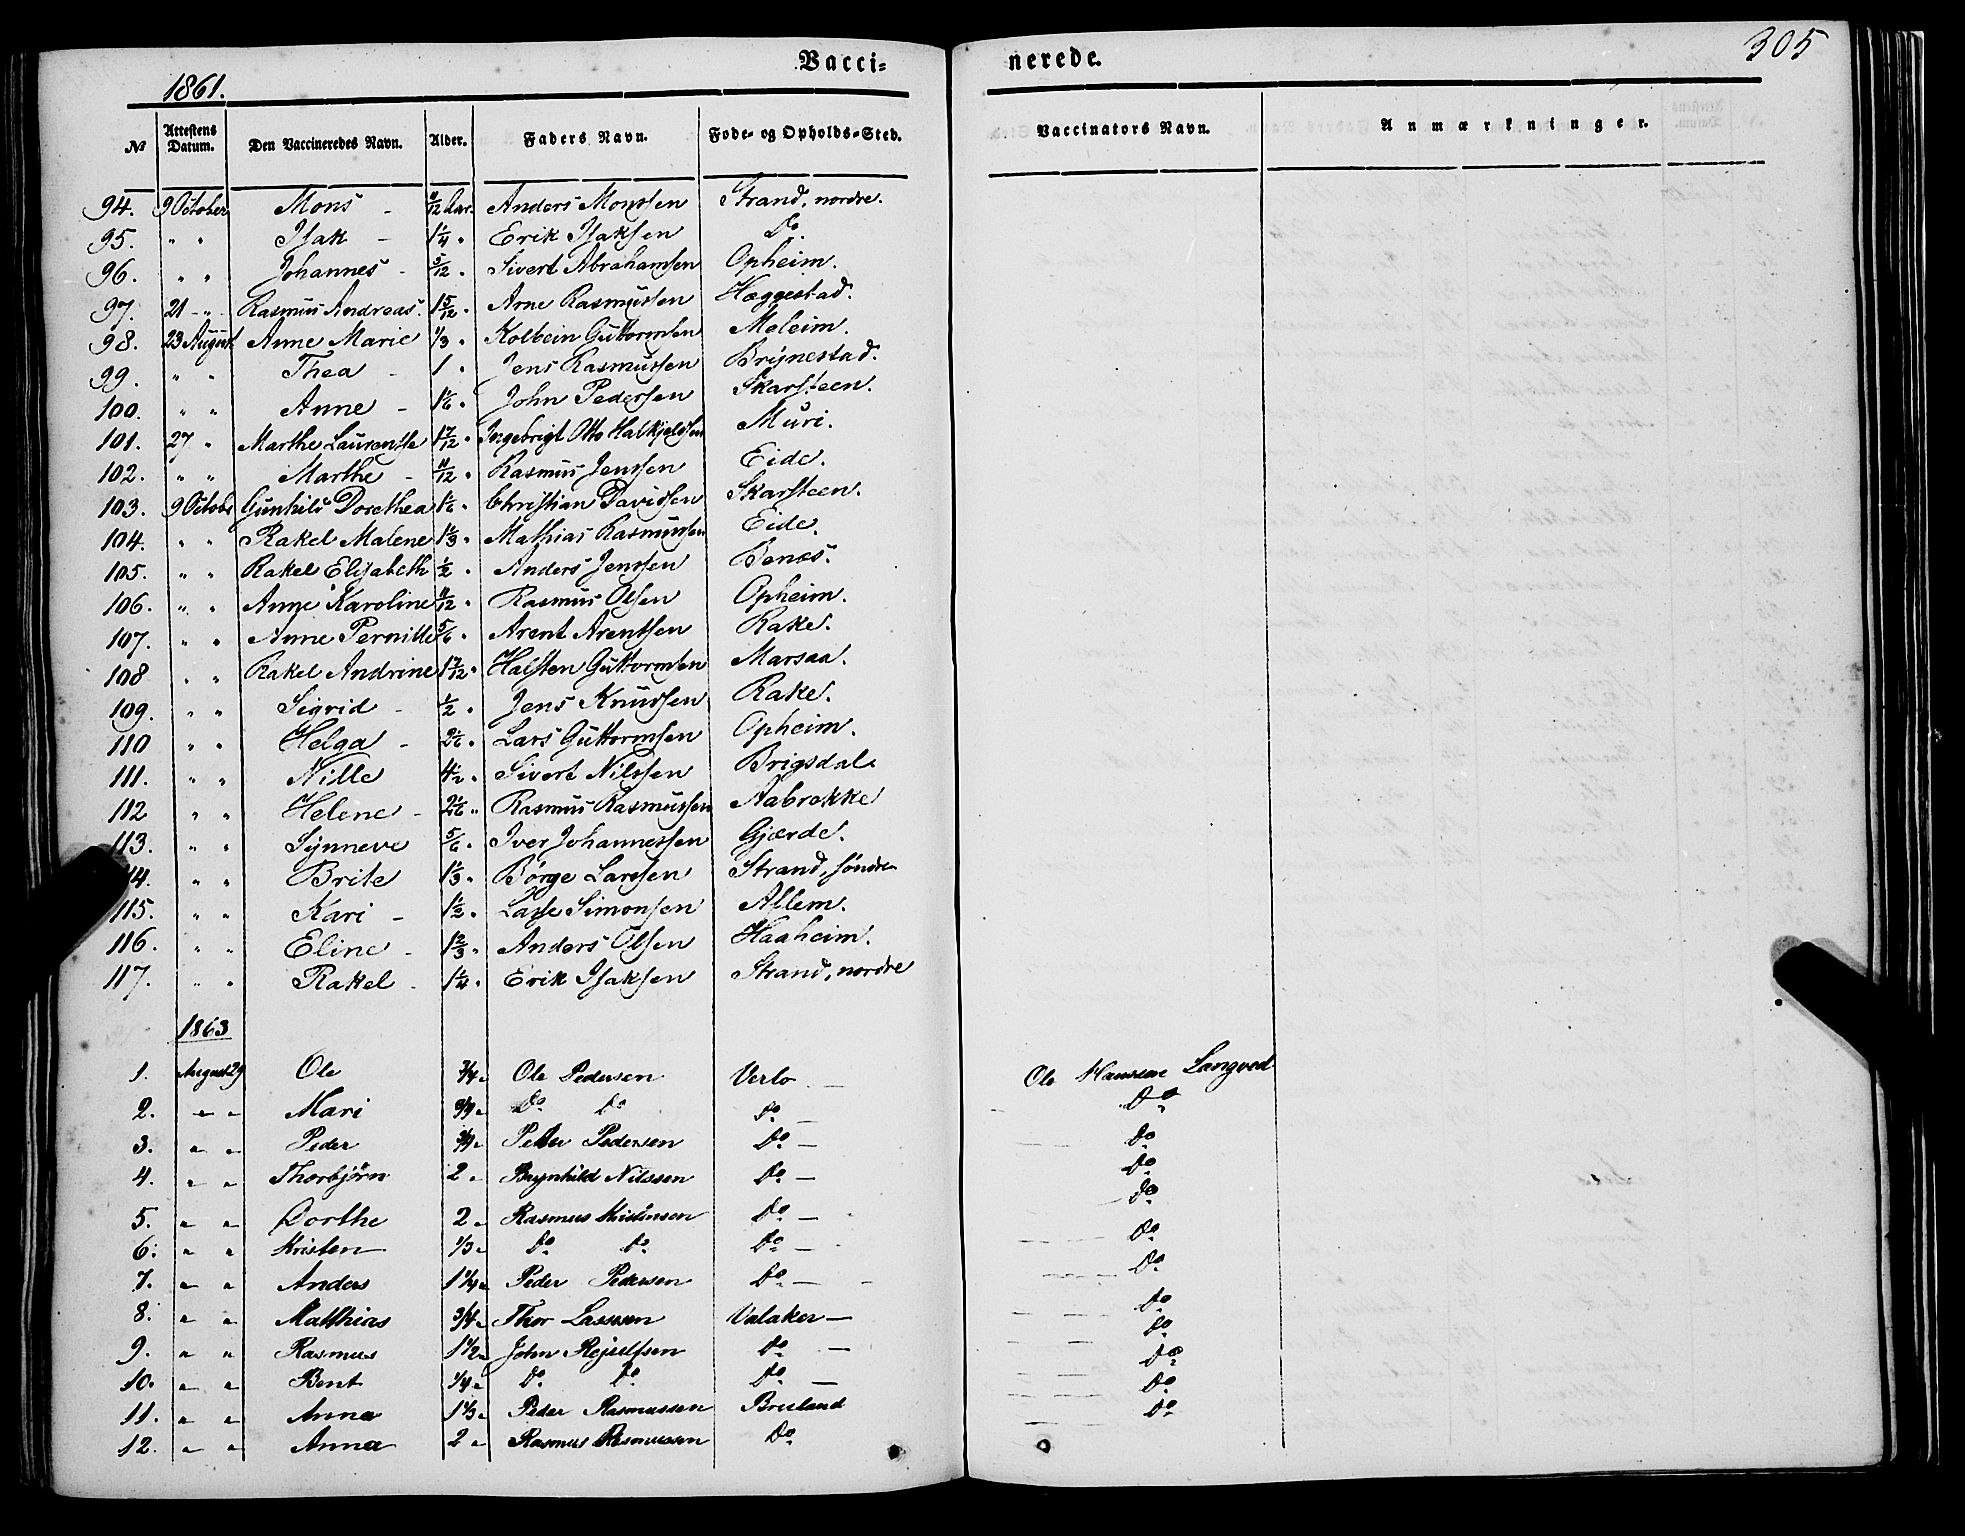 305
Vacci- nerede.
1861.
№ Attestens Datum. Den Vaccineredes Navn. Alder. Faders Navn. Føde- og Opholds-Sted. Vaccinators Navn. Anmærkninger.
94. 9 October Mons - 11/12 Aar. Anders Monssen Strand, nordre.
95. " " Isak - 1 1/4 " Erik Isaksen Do.
96. " " Johannes - 5/12 " Sivert Abrahamsen Opheim.
97. 21 - " - Rasmus Andreas. 1 5/12 " Arne Rasmussen Hæggestad.
98. 23 August Anne Marie 1/3 " Kolbein Guttormsen Meleim.
99. " " Thea - 1 " Jens Rasmussen Brynestad.
100. " " Anne - 1 1/6 " John Pedersen Skarsteen.
101. 27 " Marthe Laurensse 1 7/12 " Ingebrigt Otto Halkjeldsen Muri.
102. " " Marthe - 11/12 " Rasmus Jenssen Eide.
103. 9 Octobr Gunhild Dorethea 1 1/6 " Christian Davidsen Skarsteen.
104. " " Rakel Malene 1 1/3 " Mathias Rasmussen Eide.
105. " " Rakel Elisabeth 1/2 " Anders Jenssen Benes.
106. " " Anne Karoline 11/12 " Rasmus Olsen Opheim.
107. " " Anne Pernille 5/6 " Arent Arentsen Rake.
108 " " Rakel Andrine 1 7/12 " Halsten Guttormsen Marsaa.
109. " " Sigrid - 1/2 " Jens Knudsen Rake.
110 " " Helga - 2 1/6 " Lars Guttormsen Opheim.
111. " " Nille 4 1/2 " Sivert Nilssen Brigsdal.
112 " " Helene - 2 1/6 " Rasmus Rasmussen Aabrekke
113. " " Synneve 5/6 " Iver Johannessen Gjærde.
14. " " Brite 1 1/3 " Børge Larssen Strand, søndre
115. " " Kari - 1 1/2 " Lasse Simonsen Allem.
116. " " Eline - 1 2/3 " Anders Olsen Haaheim.
117. " " Rakel - 1 1/4 " Erik Isaksen Strand, nordre
1863
1. August 29 Ole 3/4 " Ole Pedersen Verlo - Ole Hanssen Langved
2. " " Mari " Do Do Do - Do
3. " " Peder " Peder Pedersen Do - Do
4. " " Thorbjörn 2 " Brynhild Nilssen Do - Do
5. " " Dorthe 2 " Rasmus Kristensen Do - Do
6. " " Kristen 1/3 " Do Do Do - Do
7. " " Anders 1 1/4 " Peder Pedersen Do - Do
8. " " Matthias 3/4 " Thor Lassesen Valaker - Do
9. " " Rasmus 1 1/2 " John Rejulfsen Do - Do
10. " " Bent 1/4 " Do Do Do - Do
11. " " Anna 1 1/3 " Peder Rasmussen Breland Do
12. " " Anna 2 " Rasmus Rasmussen Do Do